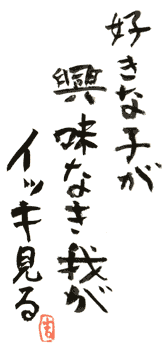 好きな子が
興味なき我が
イッキ見る